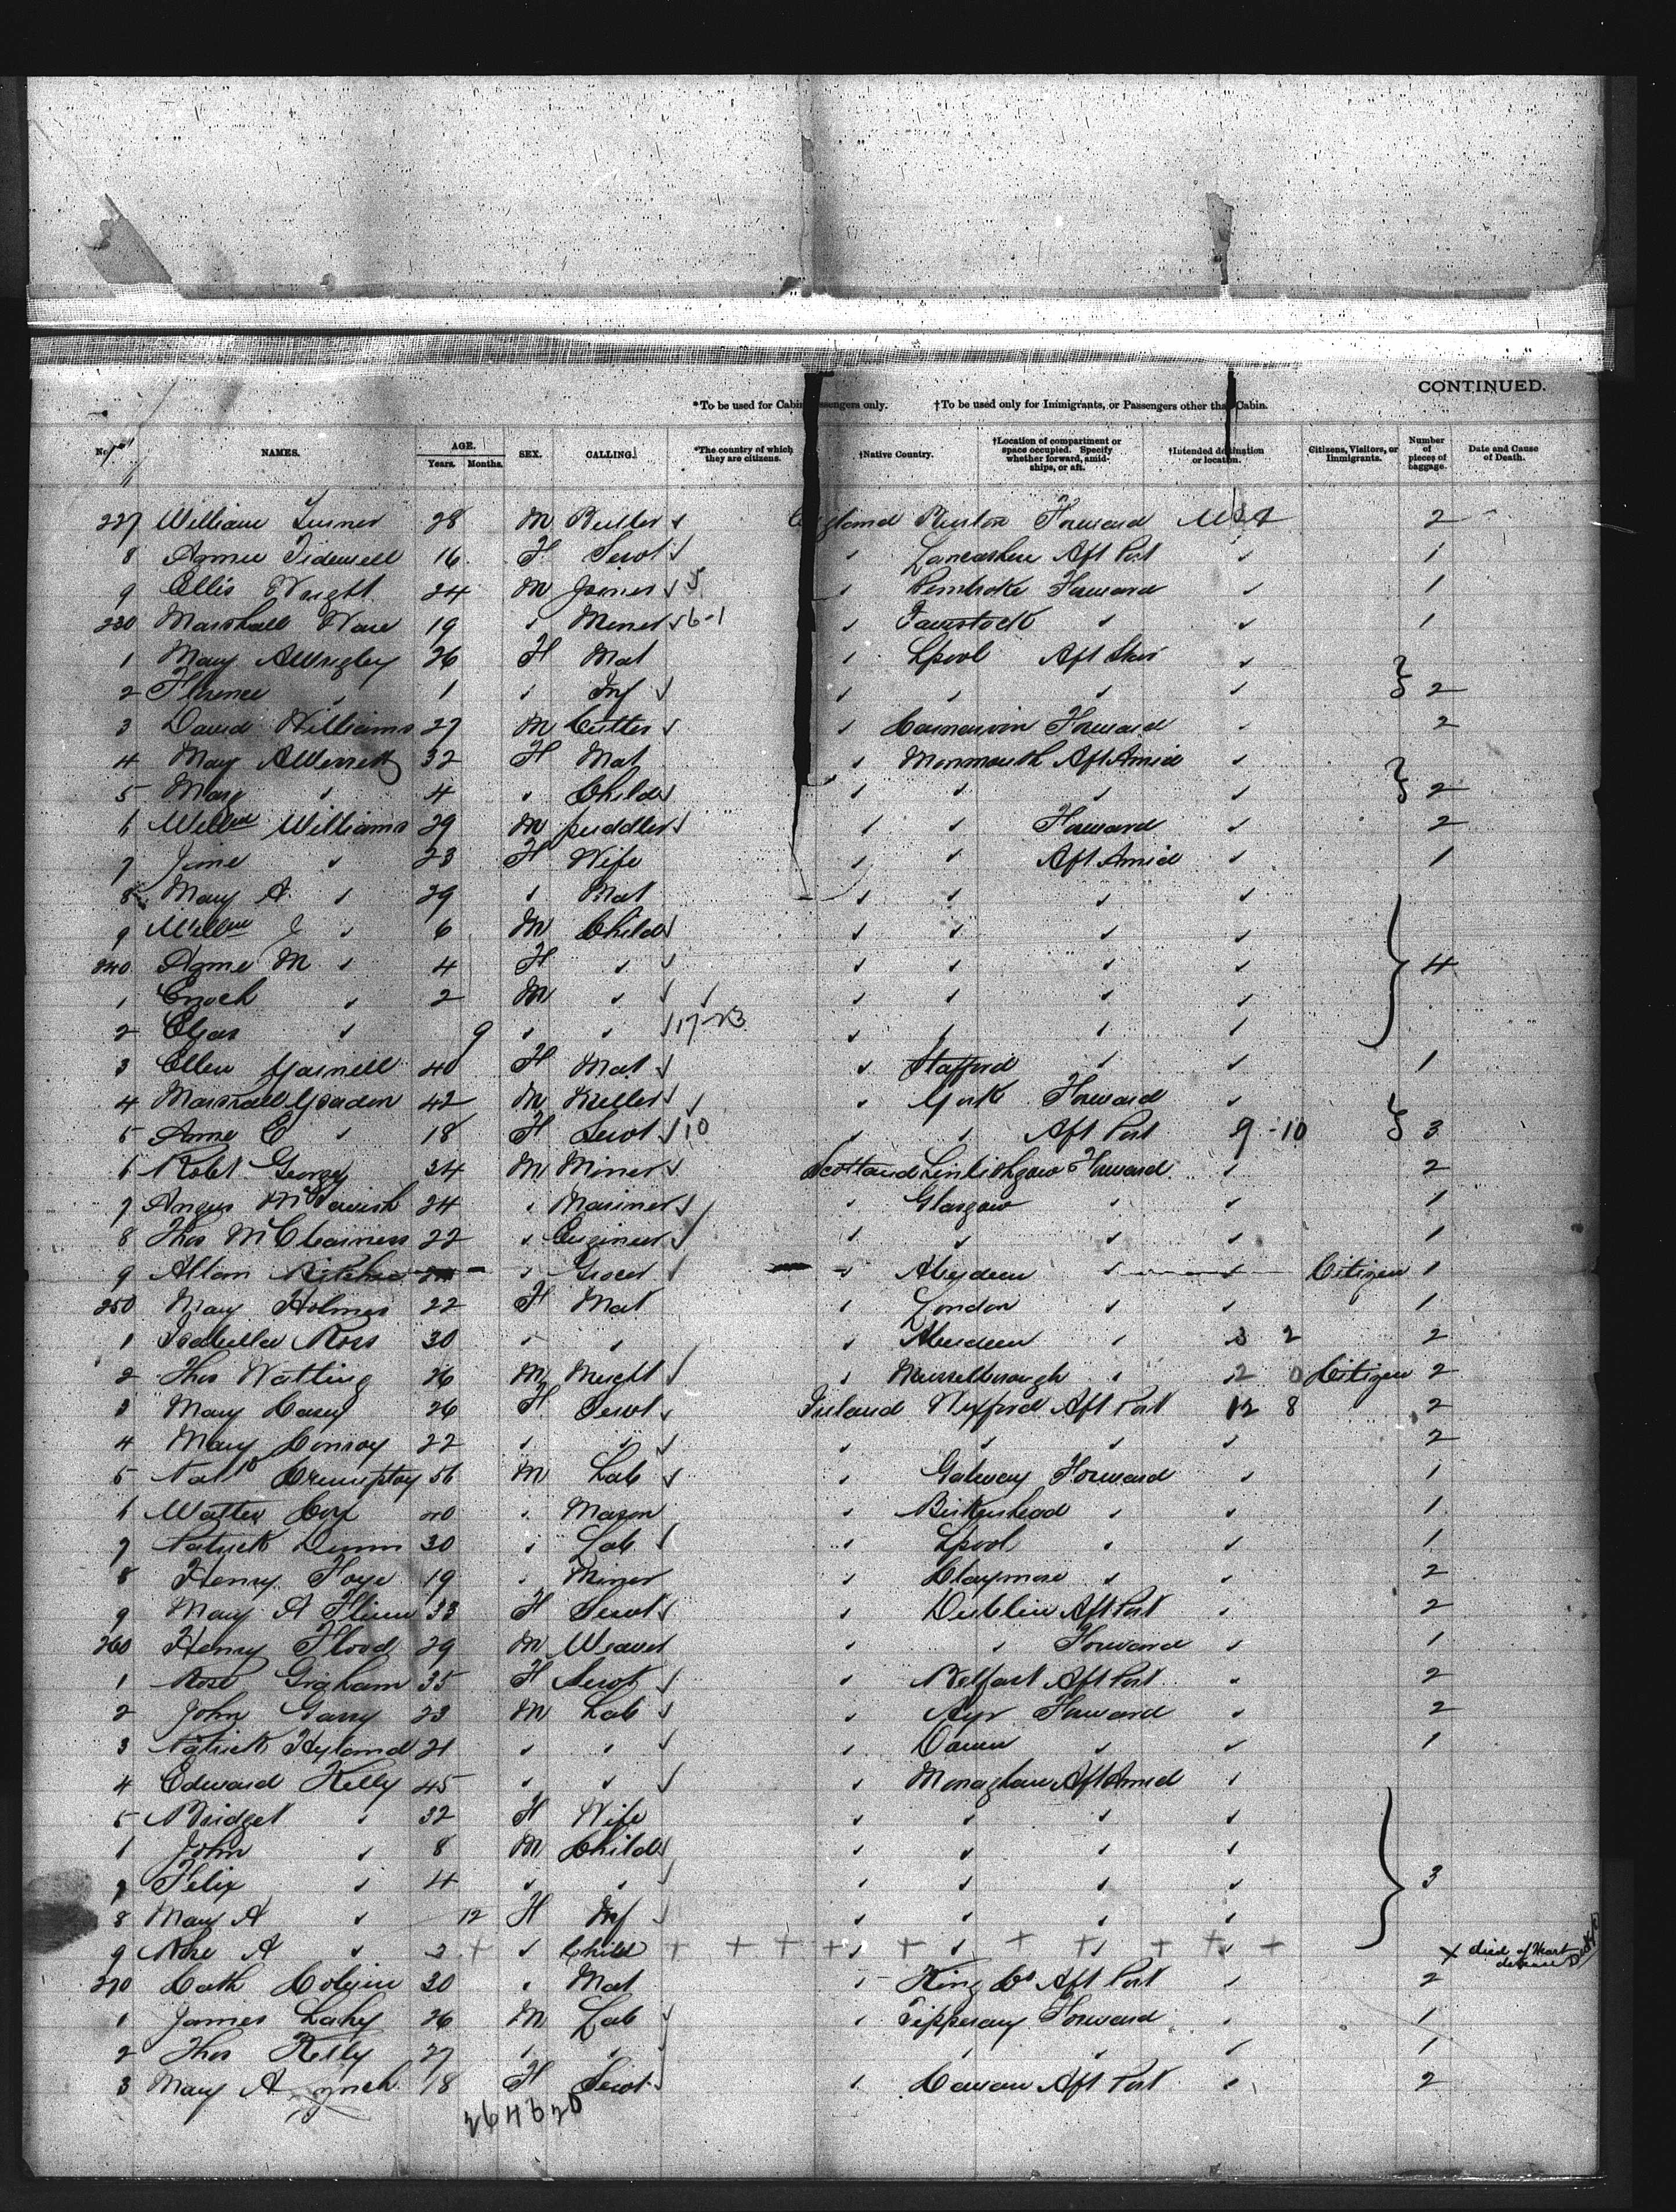 CONTINUED.
*To be used for Cabin Passengers only. †To be used only for Immigrants, or Passengers other than Cabin.
No. NAMES. AGE. Years. Months. SEX. CALLING. *The country of which they are citizens. †Native Country. †Location of compartment or space occupied. Specify whether forward, amidships, or aft. †Intended destination or location. Citizens, Visitors, or Immigrants. Number of pieces of baggage. Date and Cause of Death.
227 William Turner 28 M Butler England Forward USA 2
8 Annie Tidewell 16 F Servt Lancashire Aft Port 1
9 Ellis Wright 24 M Joiner 5 Pembroke Forward 1
230 Marshall Ware 19 Miner 6-1 Tavistock 1
1 Mary A Wrigley 26 F Mat Lpool Aft Star
2 Florence 1 Inf 2
3 David Williams 27 M Cutter Carnarvon Forward 2
4 Mary A 32 F Mat Monmouth Aft Amid
5 Mary 4 Child 2
6 Willm Williams 29 M puddler Forward 2
7 Jane 23 F Wife Aft Amid 1
8 Mary A 29 Mat
9 Willm J 6 M Child
240 Annie M 4 F 4
1 Enoch 2 M
2 9 17-23
3 Ellen Yarnell 40 F Mat Stafford 1
4 Marshall Yeadon 42 M Miller York Forward
5 Anne E 18 F Servt 10 Aft Port 9-10 3
6 Robt George 34 M Miner Scotland Linlithgow Forward 2
7 Angus McTavish 24 Mariner Glasgow 1
8 Thos 22 Engineer 1
9 Allan Ritchie Grocer Aberdeen Citizen 1
250 Mary Holmes 22 F Mat London 1
1 Isabella Ross 30 Aberdeen 3 2 2
2 Thos Watling 26 M Mercht Musselborough 2 0 Citizen 2
3 Mary Casey 26 F Servt Ireland Wexford Aft Port 12 8 2
4 Mary Conroy 22 2
5 56 M Lab Galway Forward 1
6 Walter Cox 40 Mason Birkenhead 1
7 Patrick Dunn 30 Lab Lpool 1
8 Henry Foye 19 Miner Claymore 2
9 Mary A Flinn 33 F Servt Dublin Aft Port 2
260 Henry Flood 29 M Weaver Forward 1
1 Rose Graham 35 F Servt Belfast Aft Port 2
2 John Garry 23 M Lab Ayr Forward 2
3 Patrick Hyland 21 1
4 Edward Kelly 45 Monaghan Aft Amid
5 Bridget 32 F Wife
6 John 8 M Child
7 Felix 4 3
8 Mary A 12 F Inf
9 Rose A 3 Child X died of Heart disease
270 Cath 20 Mat King Co Aft Port 2
1 James Lahy 26 M Lab Tipperary Forward 1
2 Thos Kelly 27 1
3 Mary A Lynch 18 F Servt Cavan Aft Port 2